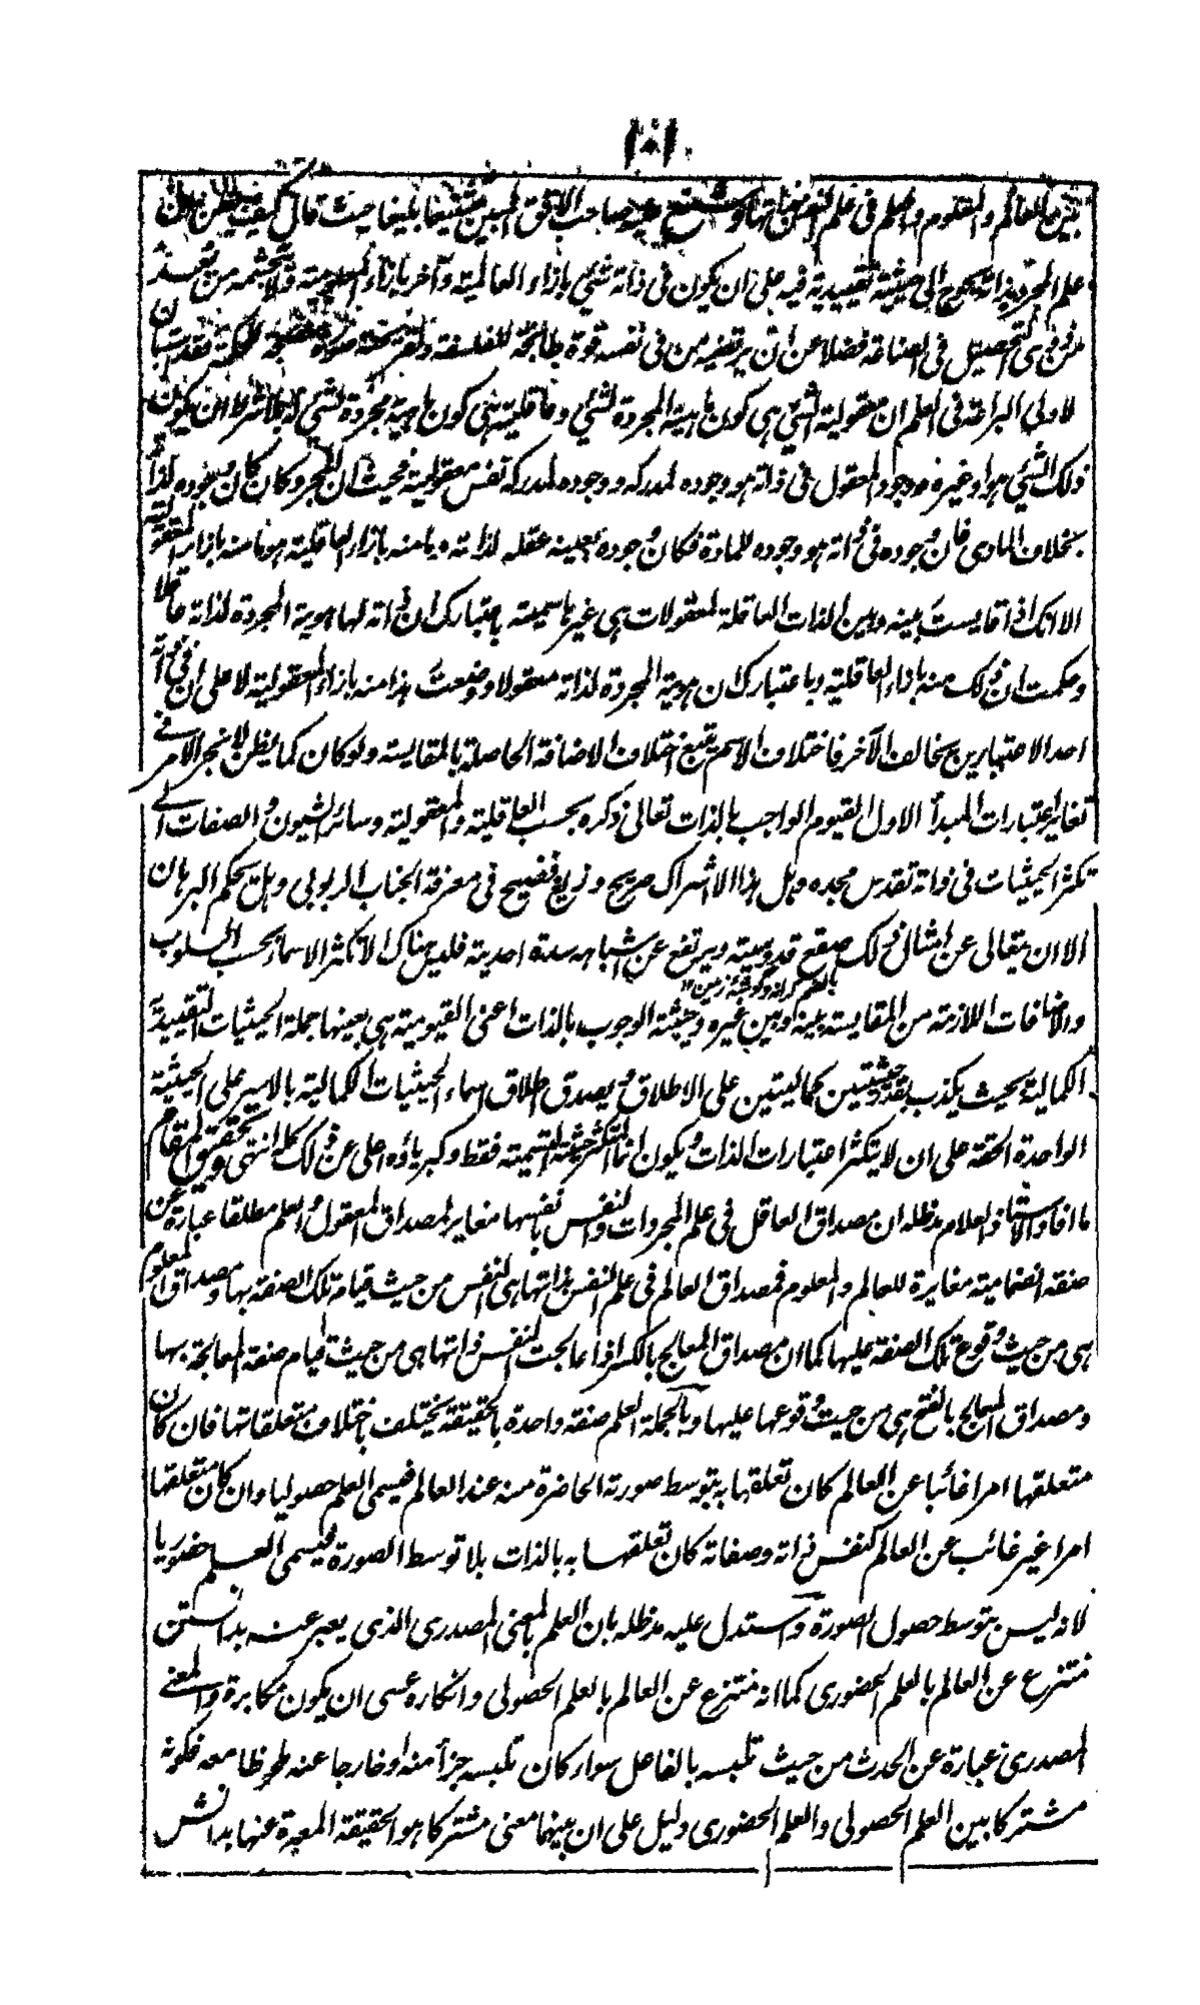 ١٠١
بين العالم والمعلوم والعلم في علم النفس بذاتها وشنع عليه صاحب الافق المبين تشنيعا بليغا حيث قال كيف يظن بان
علم المجرد بذاته يحوج الى حيثية تقييدية فيه على ان يكون في ذاته شئ بازاء العالمية وآخر بازاء المعلومية ولا يتجشمه من يعد
من ذوي التحصيل في الصناعة فضلا عن ان يرتضيه من في نفسه قوة طابخة للفلسفة وقريحته للحكمة فقد استبان
لاولي البراعة في العلم ان معقولية الشئ هي كون ماهيته المجردة لشئ وعاقليته هي كون ماهية مجردة لشئ له بلا شرط ان يكون
ذلك الشئ هو او غيره ووجود المعقول في ذاته هو وجوده لمدركه ووجوده لمدركه نفس معقوليته فحيث ان المجرد كان وجوده لذاته
بخلاف المادي فان وجوده في ذاته هو وجوده للمادة فكان وجوده بعينه عقله لذاته وما منه بازاء العاقلية هو ما منه بازاء المعقولية
الا انك اذا قايست بينه وبين الذات العاقلة لمعقولات هي غيرها سميته باعتبارك ان ذاته لها هوية المجردة لذاته عاقلا
وحكمت ان ذلك منه بازاء العاقلية وباعتبارك ان هويته المجردة لذاته معقولا ووضعت هذا منه بازاء المعقولية لا على ان في ذاته
احد الاعتبارين يخالف الآخر فاختلاف الاسم يتبع اختلاف الاضافة الحاصلة بالمقايسة ولو كان كما يظن لانجر الامر في
تغاير اعتبارات المبدأ الاول القيوم الواجب بالذات تعالى ذكره بحسب العاقلية والمعقولية وسائر الشيون والصفات الى
تكثر الحيثيات في ذاته تقدس مجده وهل هذا الا اشراك صريح وزيغ فضيح في معرفة الجناب الربوبي وهل يحكم البرهان
الا ان يتعالى عن امثال ذلك صقع قدوسيته ويرتفع عن اشباهه سدة احديته فليس هناك الا تكثر الاسماء بحسب السلوب
بالضم كرانه وگوشهٔ زمين ١٢
والاضافات اللازمة من المقايسة بينه وبين غيره وحيثية الوجوب بالذات اعني القيومية هي بعينها جملة الحيثيات التقييدية
الكمالية بحيث يكذب تعدد حيثيتين كماليتين على الاطلاق ويصدق اطلاق اسماء الحيثيات الكمالية بالاسر على الحيثية
الواحدة الحقة على ان لا يتكثر اعتبارات الذات ويكون انما التكثر حيثية التسمية فقط وكبرياؤه اعلى عن ذلك كله انتهى وتحقيق المقام
ما افاد الاستاذ العلام مد ظله ان مصداق العاقل في علم المجردات والنفس بانفسها مغاير لمصداق المعقول والعلم مطلقا عبارة عن
صفة انضمامية مغايرة للعالم والمعلوم فمصداق العالم في علم النفس بذاتها هي النفس من حيث قيام تلك الصفة بها ومصداق المعلوم
هي من حيث وقوع تلك الصفة عليها كما ان مصداق المعالج بالكسر اذا عالجت النفس ذاتها هي من حيث قيام صفة المعالجة بها
ومصداق المعالج بالفتح هي من حيث وقوعها عليها وبالجملة العلم صفة واحدة بالحقيقة يختلف باختلاف متعلقاتها فان كان
متعلقها امرا غائبا عن العالم كان تعلقها به بتوسط صورته الحاضرة منه عند العالم فيسمى العلم حصوليا وان كان متعلقها
امرا غير غائب عن العالم كنفس ذاته وصفاته كان تعلقها به بالذات بلا توسط الصورة فيسمى العلم حضوريا
لانه ليس بتوسط حصول الصورة واستدل عليه مد ظله بان العلم بالمعنى المصدري الذي يعبر عنه بدانستن
منتزع عن العالم بالعلم الحضوري كما انه منتزع عن العالم بالعلم الحصولي وانكاره عسى ان يكون مكابرة والمعنى
المصدري عبارة عن الحدث من حيث تلبسه بالفاعل سواء كان تلبسه جزأ منه او خارجا عنه ملحوظا معه فكونه
مشتركا بين العلم الحصولي والعلم الحضوري دليل على ان بينهما معنى مشتركا هو الحقيقة المعبرة عنها بدانش